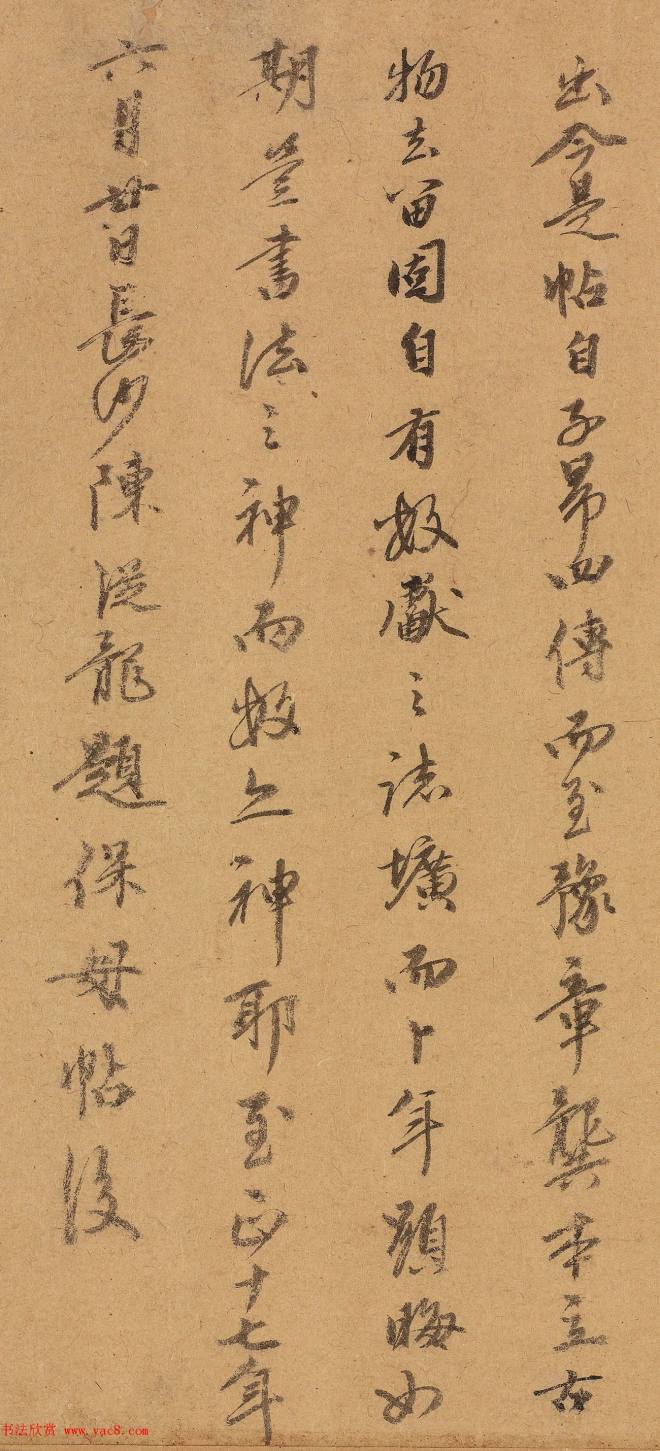 出今是帖自子昂四傳而至豫章龔本立古
物去留固自有數獻之誌壙而卜年顯晦如
期豈書法之神而數亦神耶至正十七年
六月廿日長沙陳從龍題保母帖後
书法欣赏 www.yac8.com